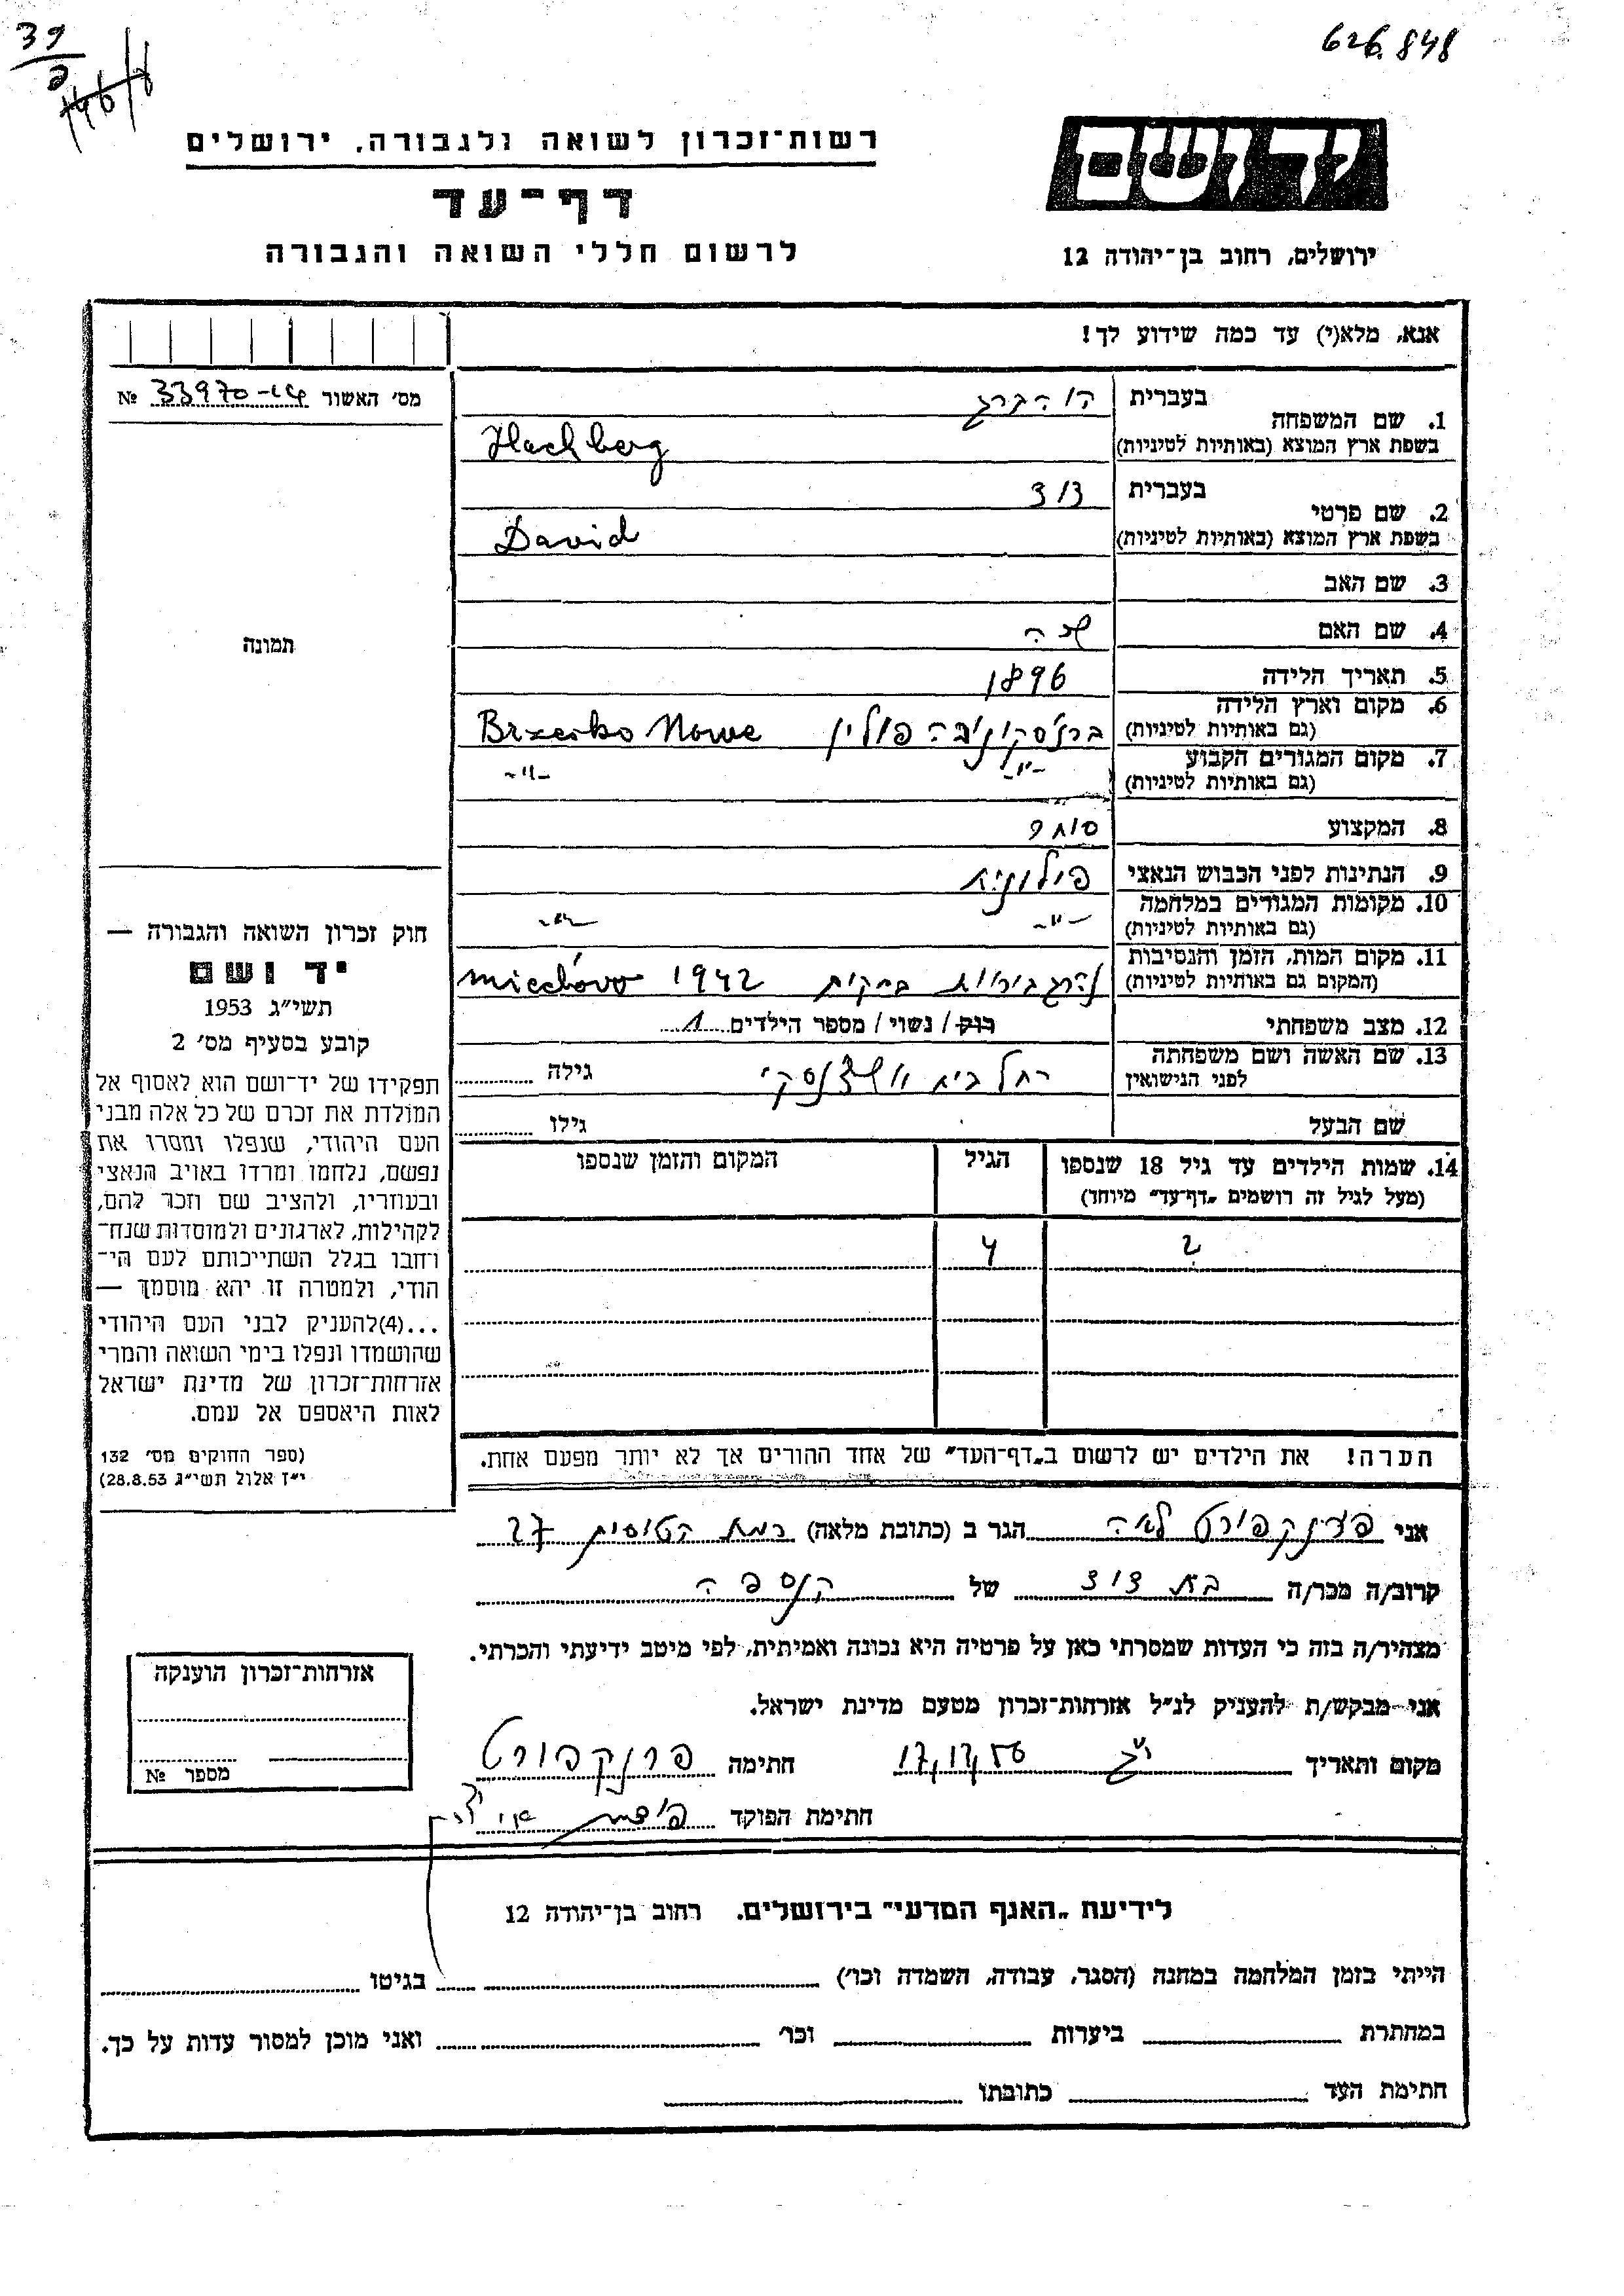 39
626.848
יד ושם
ירושלים, רחוב בן־יהודה 12
רשות־זכרון לשואה ולגבורה, ירושלים
דף־עד
לרשום חללי השואה והגבורה
אנא, מלא(י) עד כמה שידוע לך!
מס׳ האשור № 33970-
1. שם המשפחה
בעברית
בשפת ארץ המוצא (באותיות לטיניות) Hochberg
2. שם פרטי
בעברית דוד
בשפת ארץ המוצא (באותיות לטיניות) David
3. שם האב
4. שם האם
5. תאריך הלידה 1896
6. מקום וארץ הלידה
(גם באותיות לטיניות) פולין Brzesko Nowe
7. מקום המגורים הקבוע -״- -״-
(גם באותיות לטיניות)
8. המקצוע סוחר
9. הנתינות לפני הכבוש הנאצי פולנית
10. מקומות המגורים במלחמה -״- -״-
(גם באותיות לטיניות)
11. מקום המות, הזמן והנסיבות
(המקום גם באותיות לטיניות) נהרג ביריות 1942 Miechów
12. מצב משפחתי רוק / נשוי / מספר הילדים 1
13. שם האשה ושם משפחתה
לפני הנישואין רחל בית גילה
שם הבעל גילו
14. שמות הילדים עד גיל 18 שנספו הגיל המקום והזמן שנספו
(מעל לגיל זה רושמים „דף־עד״ מיוחד)
תמונה
חוק זכרון השואה והגבורה —
יד ושם
תשי״ג 1953
קובע בסעיף מס׳ 2
תפקידו של יד־ושם הוא לאסוף אל
המולדת את זכרם של כל אלה מבני
העם היהודי, שנפלו ומסרו את
נפשם, נלחמו ומרדו באויב הנאצי
ובעוזריו, ולהציב שם וזכר להם,
לקהילות, לארגונים ולמוסדות שנח־
רחבו בגלל השתייכותם לעם הי־
הודי, ולמטרה זו יהא מוסמך —
...(4)להעניק לבני העם היהודי
שהושמדו ונפלו בימי השואה והמרי
אזרחות־זכרון של מדינת ישראל
לאות היאספם אל עמם.
(ספר החוקים מס׳ 132
י״ז אלול תשי״ג 28.8.53)
הערה! את הילדים יש לרשום ב„דף־העד״ של אחד ההורים אך לא יותר מפעם אחת.
אני פרנקפורט לאה הגר ב (כתובת מלאה) רמת הטייסים 27
קרוב/ה מכר/ה בת דוד של הנספה
מצהיר/ה בזה כי העדות שמסרתי כאן על פרטיה היא נכונה ואמיתית, לפי מיטב ידיעתי והכרתי.
אני מבקש/ת להעניק לנ״ל אזרחות־זכרון מטעם מדינת ישראל.
מקום ותאריך 17.12.56 חתימה פרנקפורט
חתימת הפוקד
אזרחות־זכרון הוענקה
מספר №
לידיעת „האגף המדעי״ בירושלים, רחוב בן־יהודה 12
הייתי בזמן המלחמה במחנה (הסגר, עבודה, השמדה וכו׳) בגיטו
במחתרת ביערות וכו׳ ואני מוכן למסור עדות על כך.
חתימת העד כתובתו